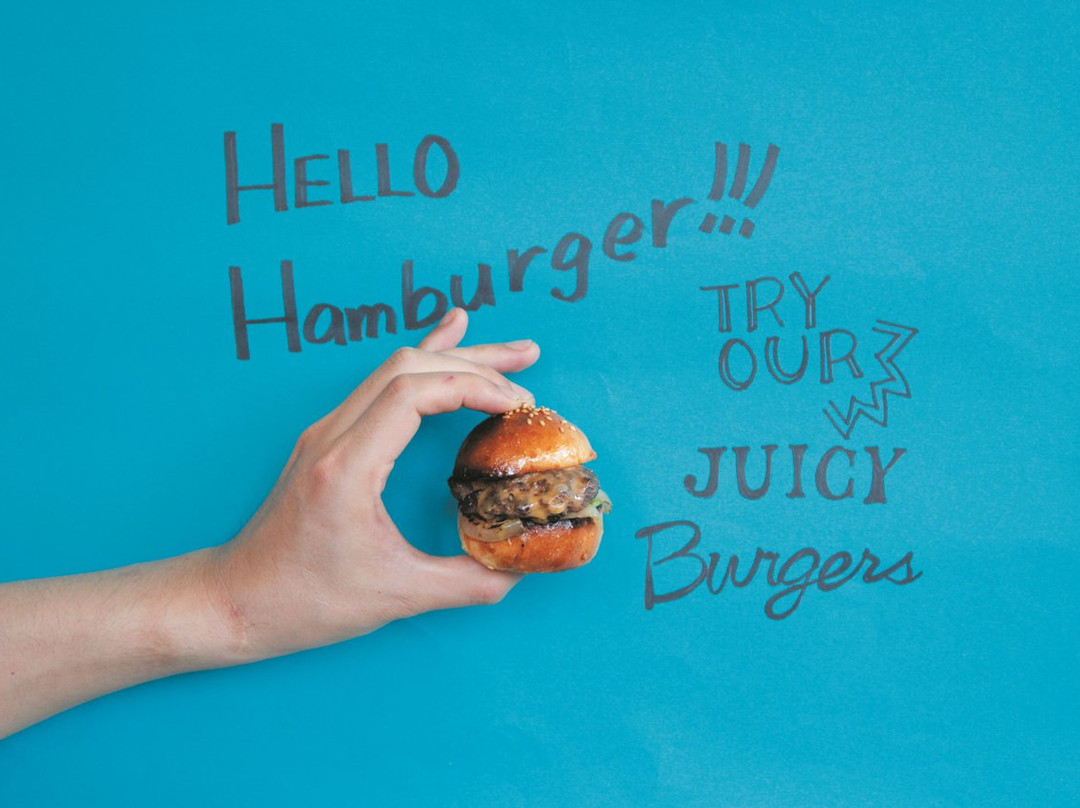 HELLO
Hamburger!!!
TRY
OUR
JUICY
Burgers